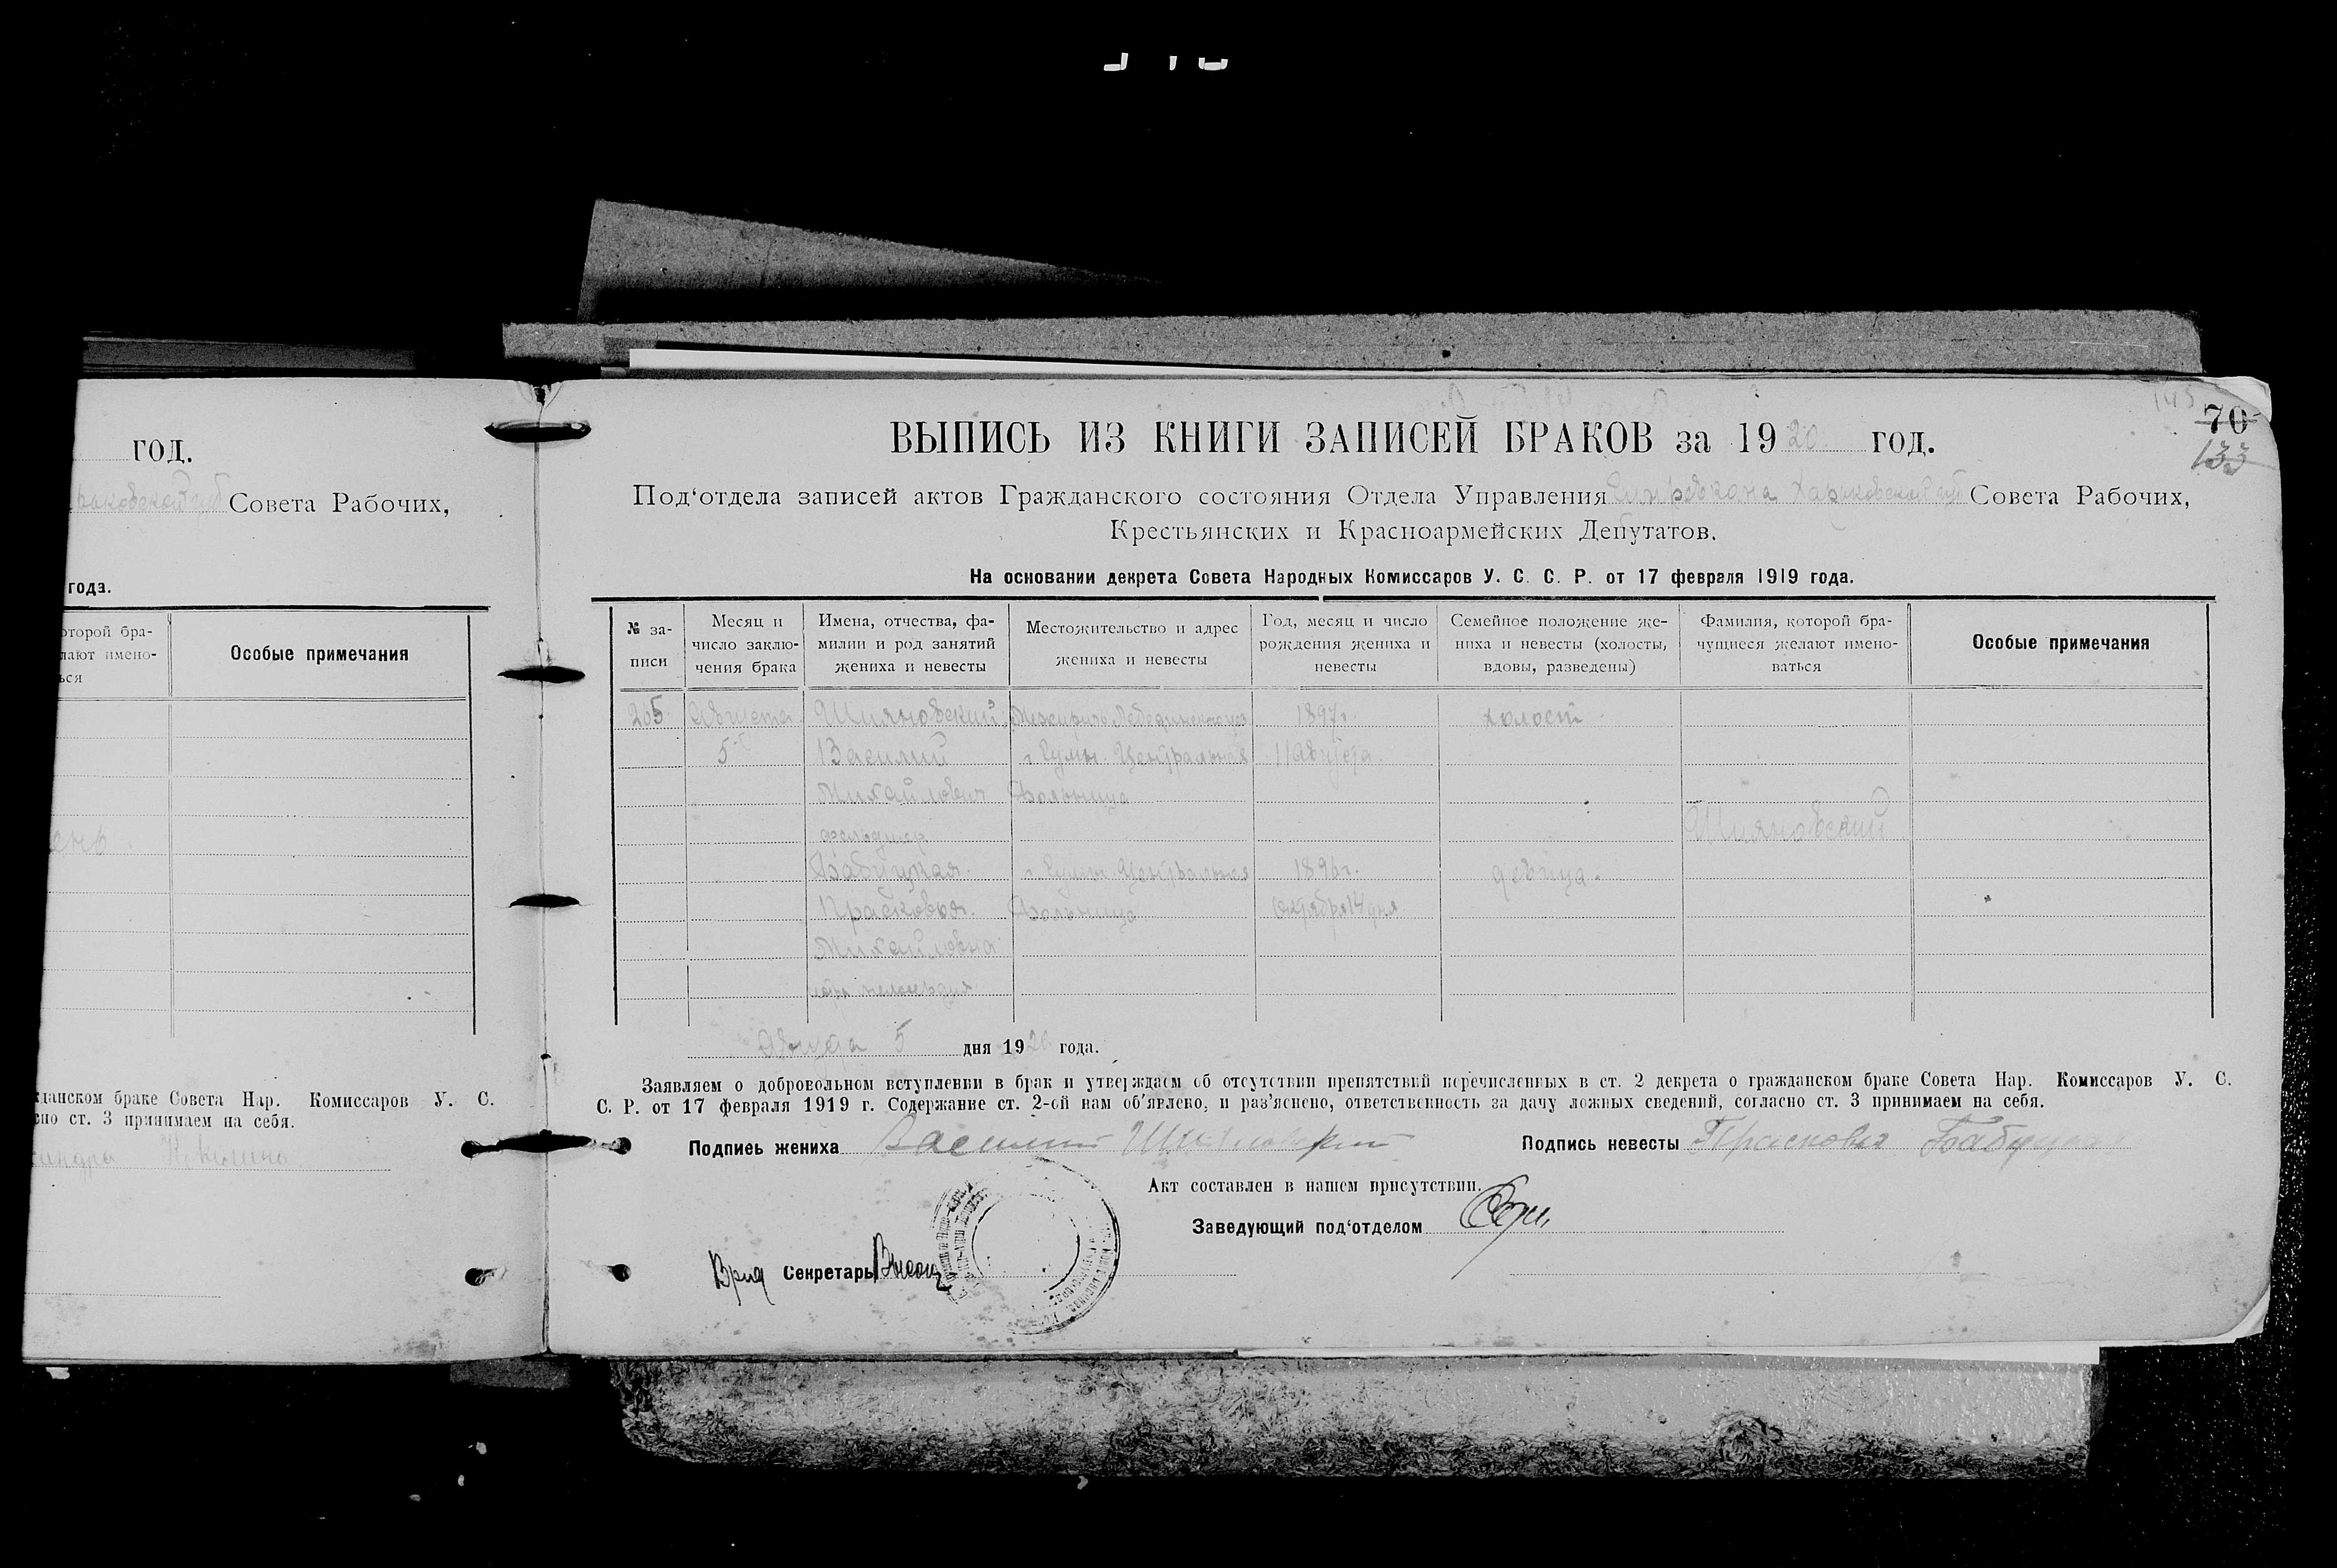 год.
Совета Рабочих,
года.
оторой бра-
лают имено-
ься
Особые примечания
ень
жданском браке Совета Нар. Комиссаров У. С.
сно ст. 3 принимаем на себя.
70
133
ВЫПИСЬ ИЗ КНИГИ ЗАПИСЕЙ БРАКОВ за 1920 год.
Под'отдела записей актов Гражданского состояния Отдела Управления Харьковской губ Совета Рабочих,
Крестьянских и Красноармейских Депутатов.
На основании декрета Совета Народных Комиссаров У. С. С. Р. от 17 февраля 1919 года.
№ за-
писи
Месяц и
число заклю-
чения брака
Имена, отчества, фа-
милии и род занятий
жениха и невесты
Местожительство и адрес
жениха и невесты
Год, месяц и число
рождения жениха и
невесты
Семейное положение же-
ниха и невесты (холосты,
вдовы, разведены)
Фамилия, которой бра-
чущиеся желают имено-
ваться
Особые примечания
205 Августа Шияновский 1897г. холост
5 Василий г. Сумы. Центральная 11 Августа
Михайлович Больница
фельдшер Шияновский
Бабуцкая г. Сумы Центральная 1896г. девица.
Прасковья Больница Октября 14 дня
Михайловна
Августа 5 дня 1920 года.
Заявляем о добровольном вступлении в брак и утверждаем об отсутствии препятствий перечисленных в ст. 2 декрета о гражданском браке Совета Нар. Комиссаров У. С.
С. Р. от 17 февраля 1919 г. Содержание ст. 2-ой нам об'явлено, и раз'яснено, ответственность за дачу ложных сведений, согласно ст. 3 принимаем на себя.
Подпись жениха Василий Шияновский Подпись невесты Прасковья Бабуцкая
Акт составлен в нашем присутствии.
Заведующий под'отделом
Врид Секретарь